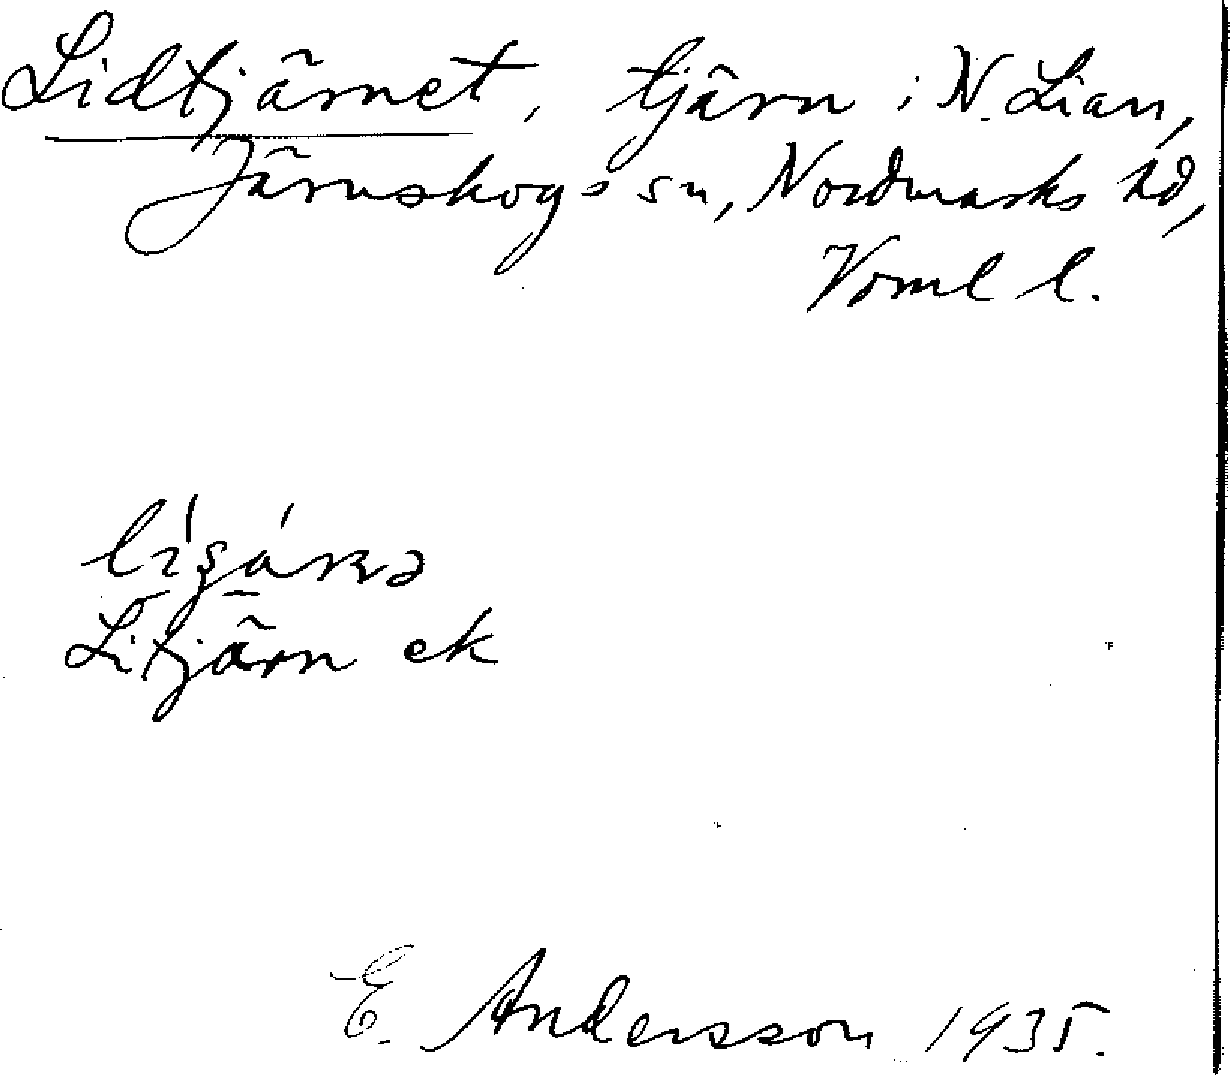 Lidtjärnet, tjärn i N. Lian,
Järnskogs sn, Nordmarks hd,
Verml l.
Litjärn ek
E. Andersson 1935.